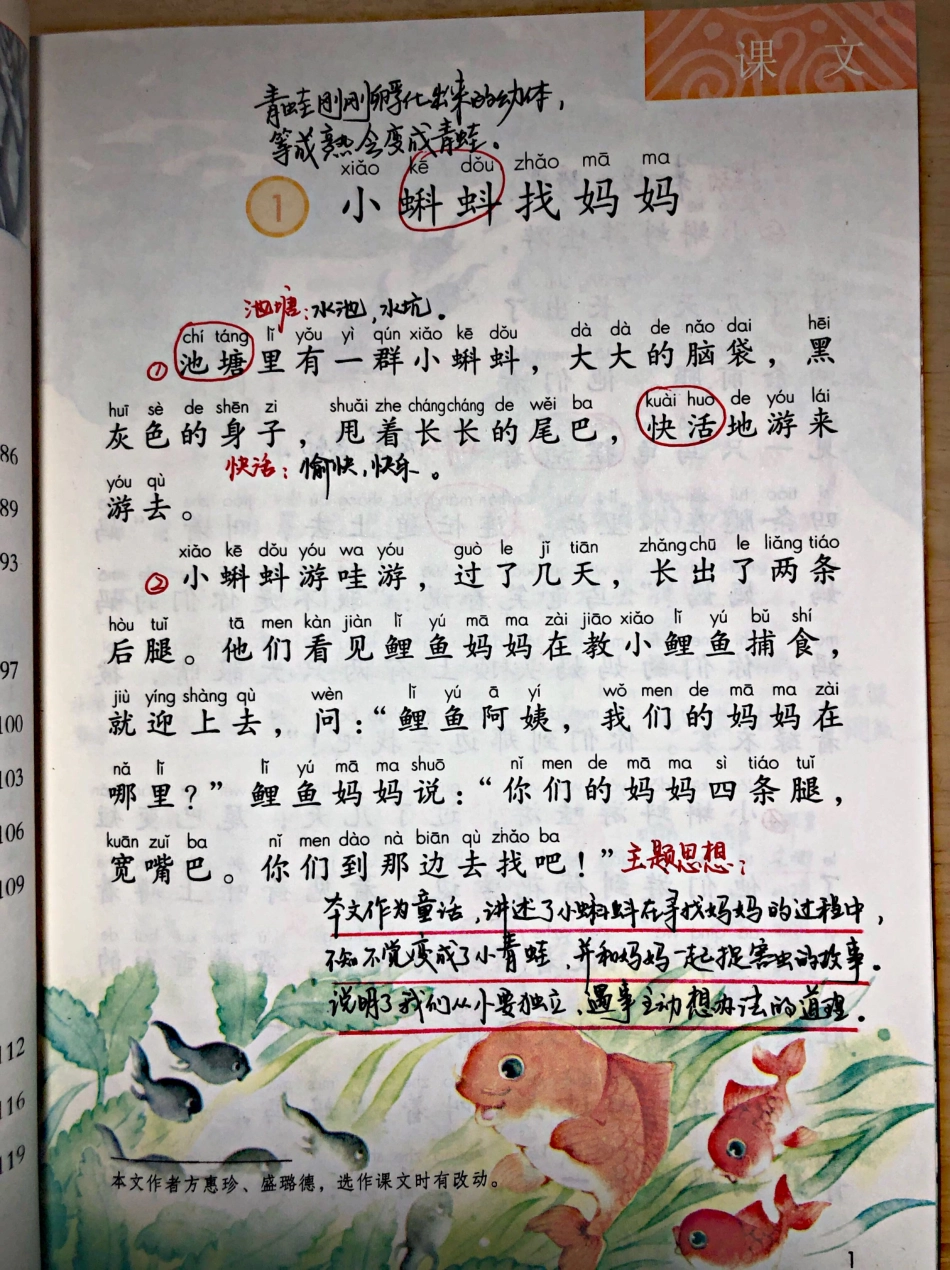 课 文
青蛙刚刚孵化出来的幼体，
等成熟会变成青蛙。
xiǎo kē dǒu zhǎo mā ma
1 小蝌蚪找妈妈
池塘：水池，水坑。
chí táng lǐ yǒu yì qún xiǎo kē dǒu dà dà de nǎo dai hēi
① 池塘里有一群小蝌蚪，大大的脑袋，黑
huī sè de shēn zi shuǎi zhe cháng cháng de wěi ba kuài huo de yóu lái
灰色的身子，甩着长长的尾巴，快活地游来
快活：愉快，快乐。
yóu qù
游去。
xiǎo kē dǒu yóu wa yóu guò le jǐ tiān zhǎng chū le liǎng tiáo
② 小蝌蚪游哇游，过了几天，长出了两条
hòu tuǐ tā men kàn jiàn lǐ yú mā ma zài jiāo xiǎo lǐ yú bǔ shí
后腿。他们看见鲤鱼妈妈在教小鲤鱼捕食，
jiù yíng shàng qù wèn lǐ yú ā yí wǒ men de mā ma zài
就迎上去，问：“鲤鱼阿姨，我们的妈妈在
nǎ lǐ lǐ yú mā ma shuō nǐ men de mā ma sì tiáo tuǐ
哪里？”鲤鱼妈妈说：“你们的妈妈四条腿，
kuān zuǐ ba nǐ men dào nà biān qù zhǎo ba
宽嘴巴。你们到那边去找吧！”主题思想：
本文作为童话，讲述了小蝌蚪在寻找妈妈的过程中，
不知不觉变成了小青蛙，并和妈妈一起捉害虫的故事。
说明了我们从小要独立，遇事主动想办法的道理。
本文作者方惠珍、盛璐德，选作课文时有改动。
1
86
89
93
97
100
103
106
109
112
116
119